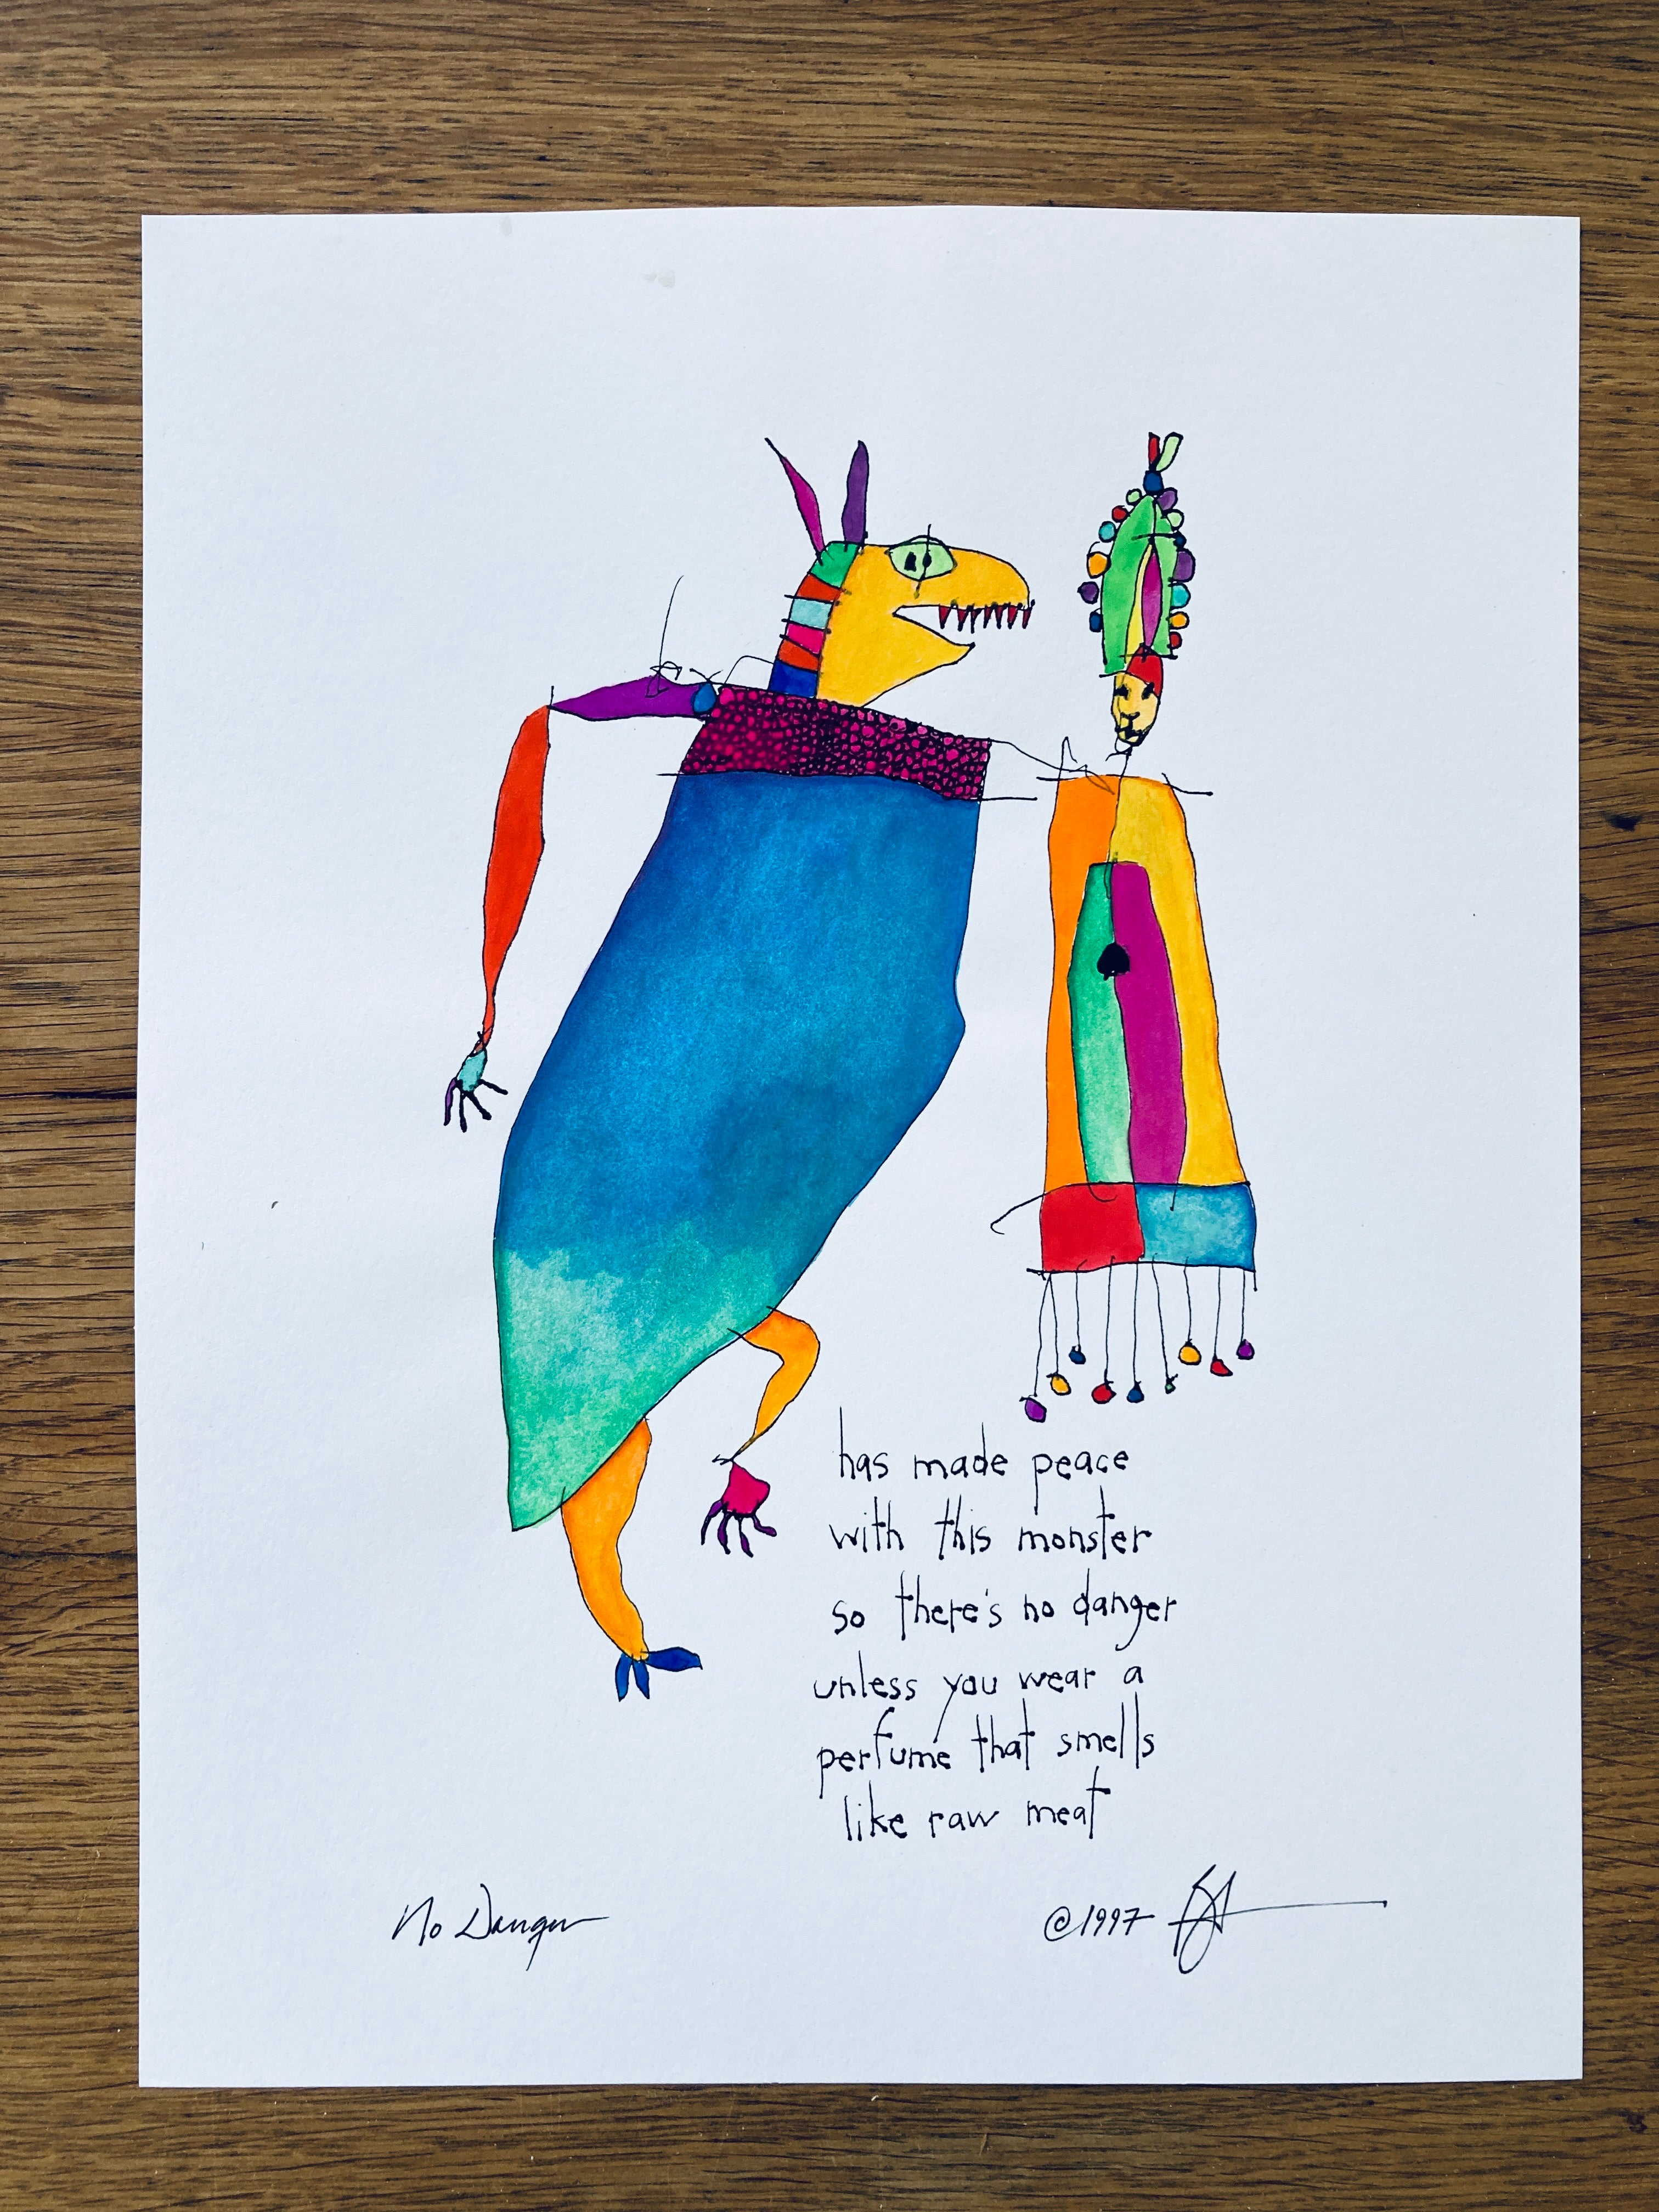 has made peace
with this monster
so there's no danger
unless you wear a
perfume that smells
like raw meat
No Danger
©1997